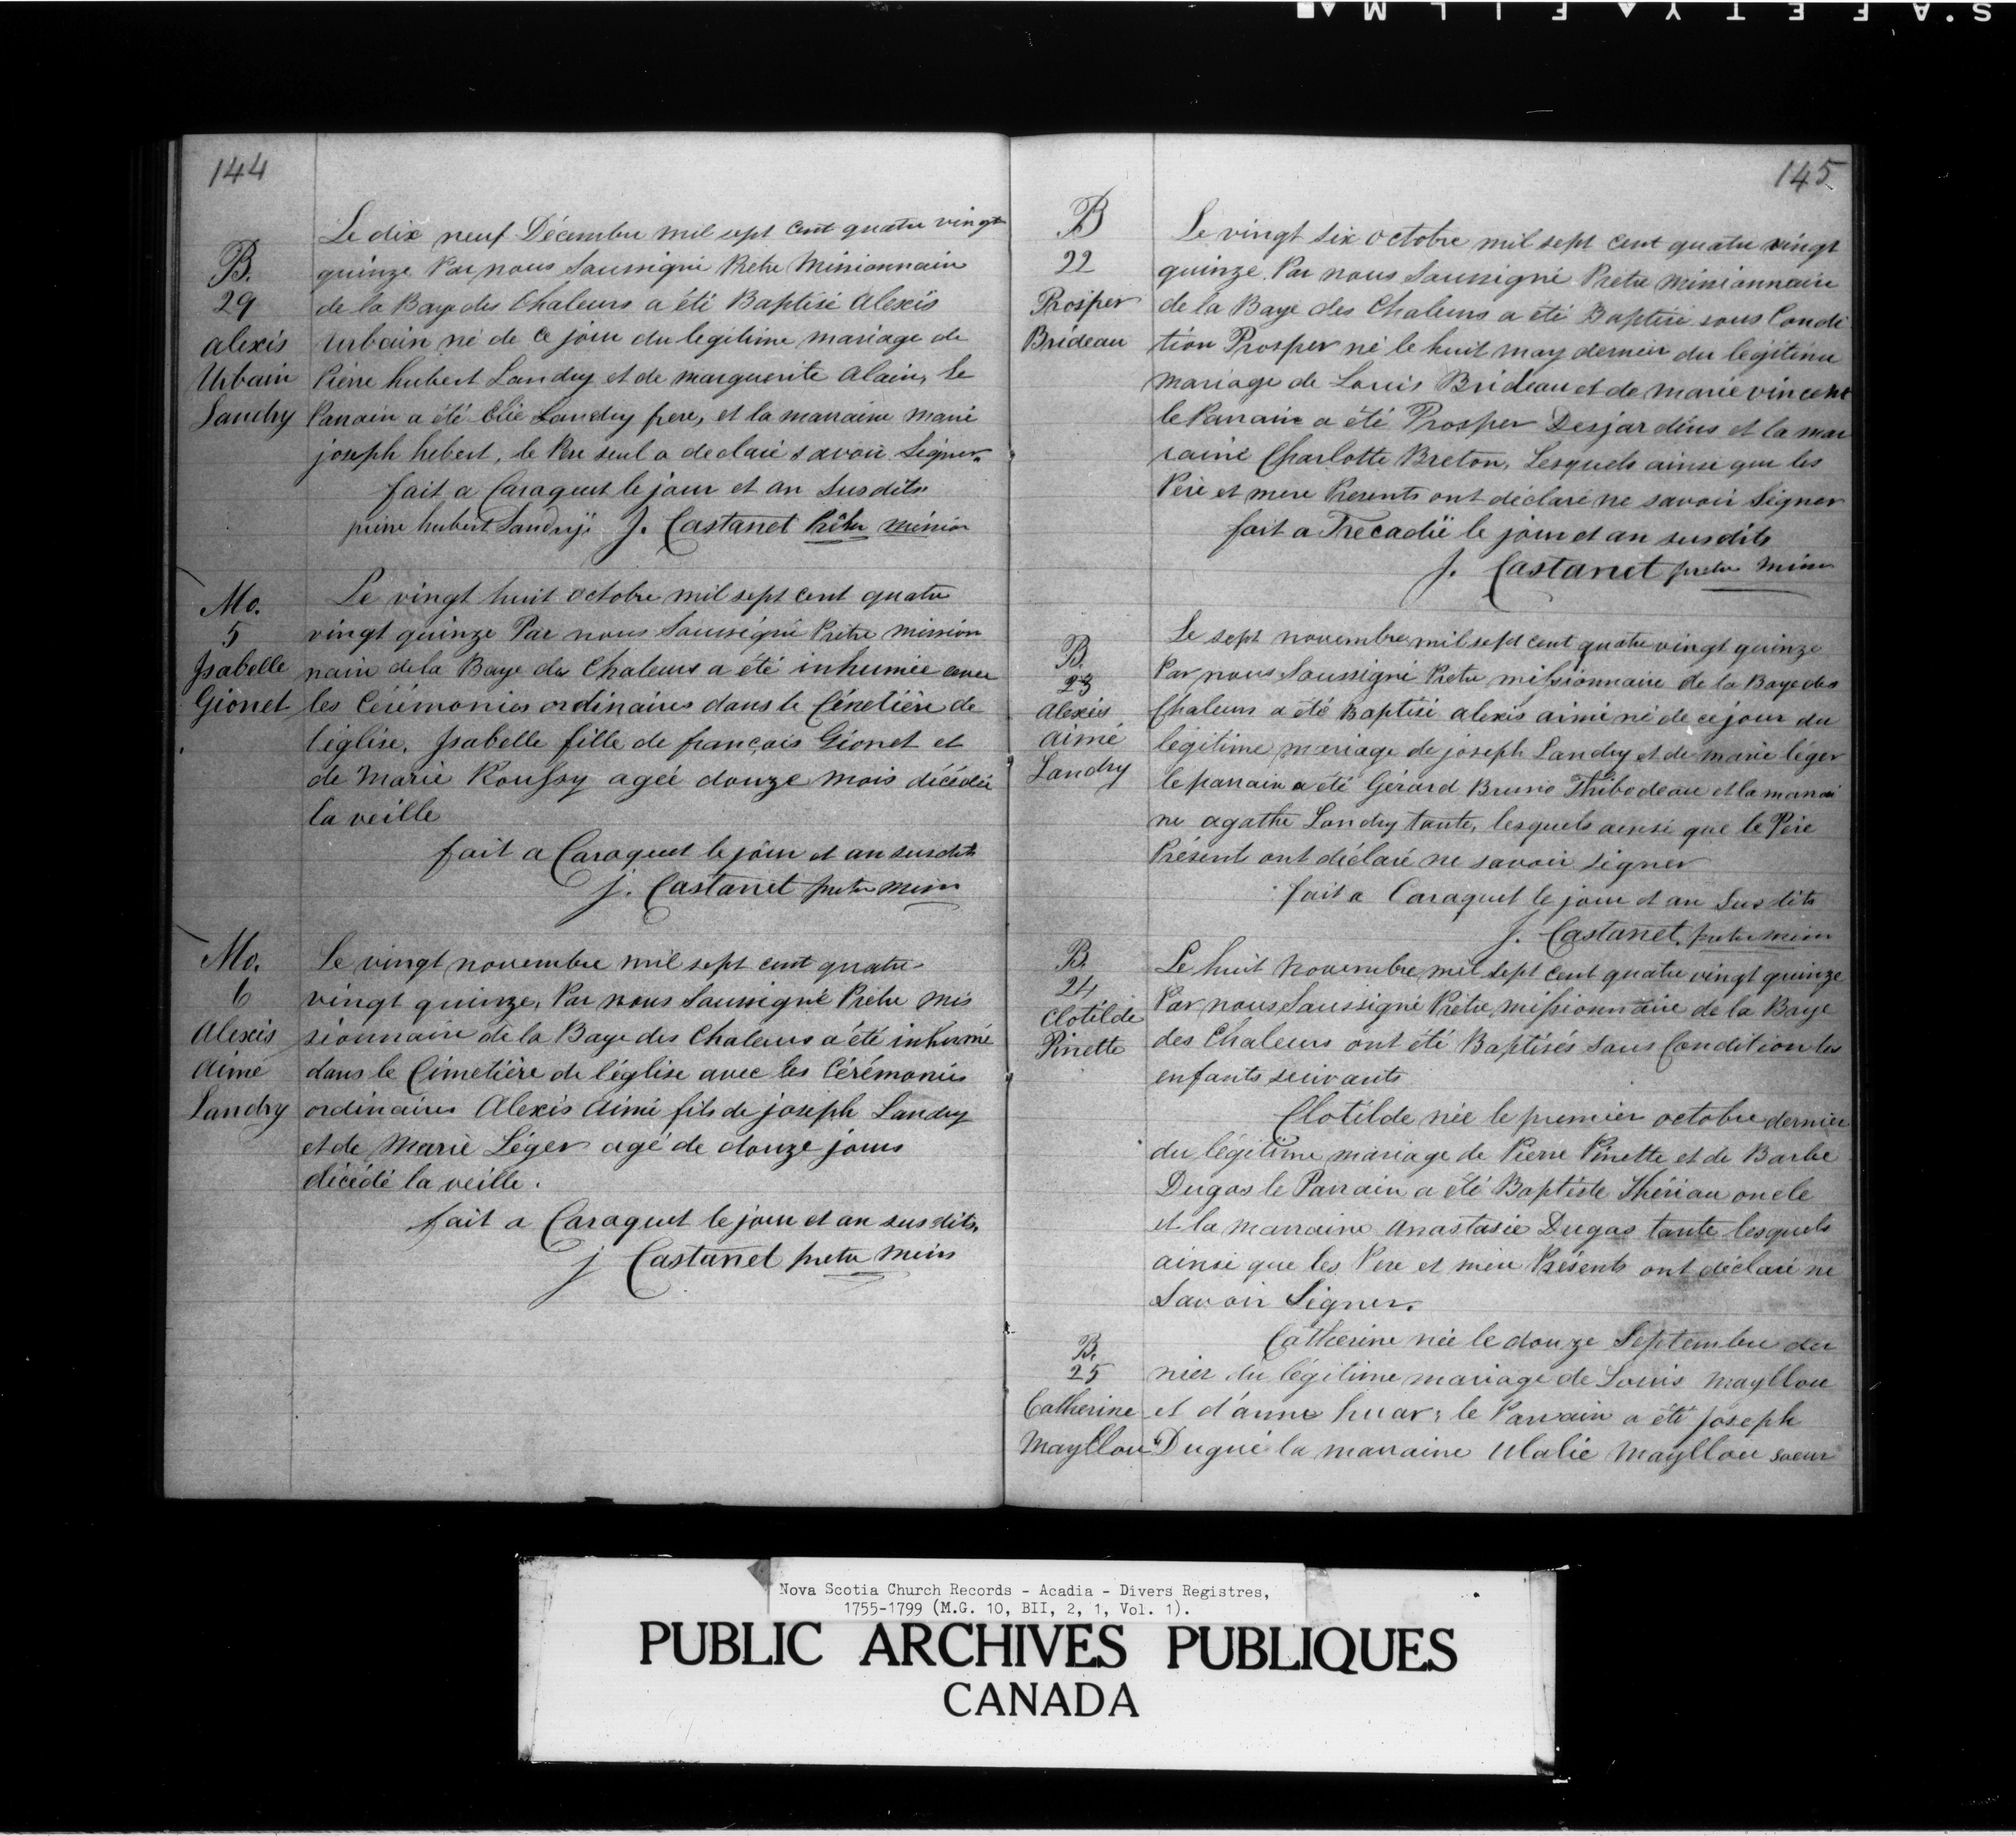 S.A F E T Y ▲ F I L M ▲■
144
B.
29
alexis
Urbain
Landry
Le dix neuf Décembre mil sept cent quatre vingt
quinze Par nous Saussigné Pretre Missionnaire
de la Baye des Chaleurs a été Baptisé Alexis
urbain né de ce jour du legitime mariage de
Pierre hubert Landry et de marguerite Alain, le
Parrain a été Elie Landry frere, et la marraine Marie
joseph hebert, le Pere seul a declaré savoir Signer.
fait a Caraquet le jour et an Susdits
pierre hubert Landry J. Castanet Prêtre mission
Mo.
5
Isabelle
Gionet
Le vingt huit octobre mil sept cent quatre
vingt quinze Par nous Soussigné Prêtre mission
naire de la Baye des Chaleurs a été inhumée avec
les Cérémonies ordinaires dans le Cémetière de
l'église, Isabelle fille de françois Gionet et
de Marie Roussy agée douze mois décédée
la veille
fait a Caraquet le jour et an susdits
j. Castanet pretre miss
Mo.
6
Alexis
Aimé
Landry
Le vingt novembre mil sept cent quatre
vingt quinze, Par nous Saussigné Prêtre mis
sionnaire de la Baye des Chaleurs a été inhumé
dans le Cimetière de l'église avec les Cérémonies
ordinaires Alexis Aimé fils de joseph Landry
et de Marie Léger agé de douze jours
décédé la veille.
fait a Caraquet le jour et an susdits,
j Castanet pretre miss
145
B
22
Prosper
Brideau
Le vingt six octobre mil sept cent quatre vingt
quinze. Par nous Saussigné Pretre missionnaire
de la Baye des Chaleurs a été Baptisé sous Condi
tion Prosper né le huit may dernier du légitime
mariage de Louis Brideau et de marie vincent
le Parrain a été Prosper Desjardins et la mar
raine Charlotte Breton, Lesquels ainsi que les
Père et mere Presents ont déclaré ne savoir Signer
fait a Trecadïe le jour et an susdits
J. Castanet pretre miss
B.
23
Alexis
aimé
Landry
Le sept novembre mil sept cent quatre vingt quinze
Par nous Soussigné Pretre missionnaire de la Baye des
Chaleurs a été Baptisé alexis aimé né de ce jour du
légitime mariage de joseph Landry et de marie léger
le parrain a été Gérard Bruno Thibodeau et la marrai
ne agathe Landry tante, lesquels ainsi que le Père
Présents ont déclaré ne savoir signer
fait a Caraquet le jour et an Susdits
J. Castanet, pretre miss
B.
24
Clotilde
Pinette
Le huit Novembre mil sept cent quatre vingt quinze
Par nous Saussigné Prêtre missionnaire de la Baye
des Chaleurs ont été Baptisés sous Condition les
enfants suivants
Clotilde née le premier octobre dernier
du légitime mariage de Pierre Pinette et de Barbe
Dugas le Parrain a été Baptiste Thériau oncle
et la marraine anastasie Dugas tante lesquels
ainsi que les Pere et mère Présents ont déclaré ne
Savoir Signer.
B.
25
Catherine
Mayllou
Catherine née le douze Septembre der
nier du légitime mariage de Louis Mayllou
et d'anne huar; le Parrain a été joseph
Dugué la marraine Ulalie Mayllou soeur
Nova Scotia Church Records - Acadia - Divers Registres,
1755-1799 (M.G. 10, BII, 2, 1, Vol. 1).
PUBLIC ARCHIVES PUBLIQUES
CANADA